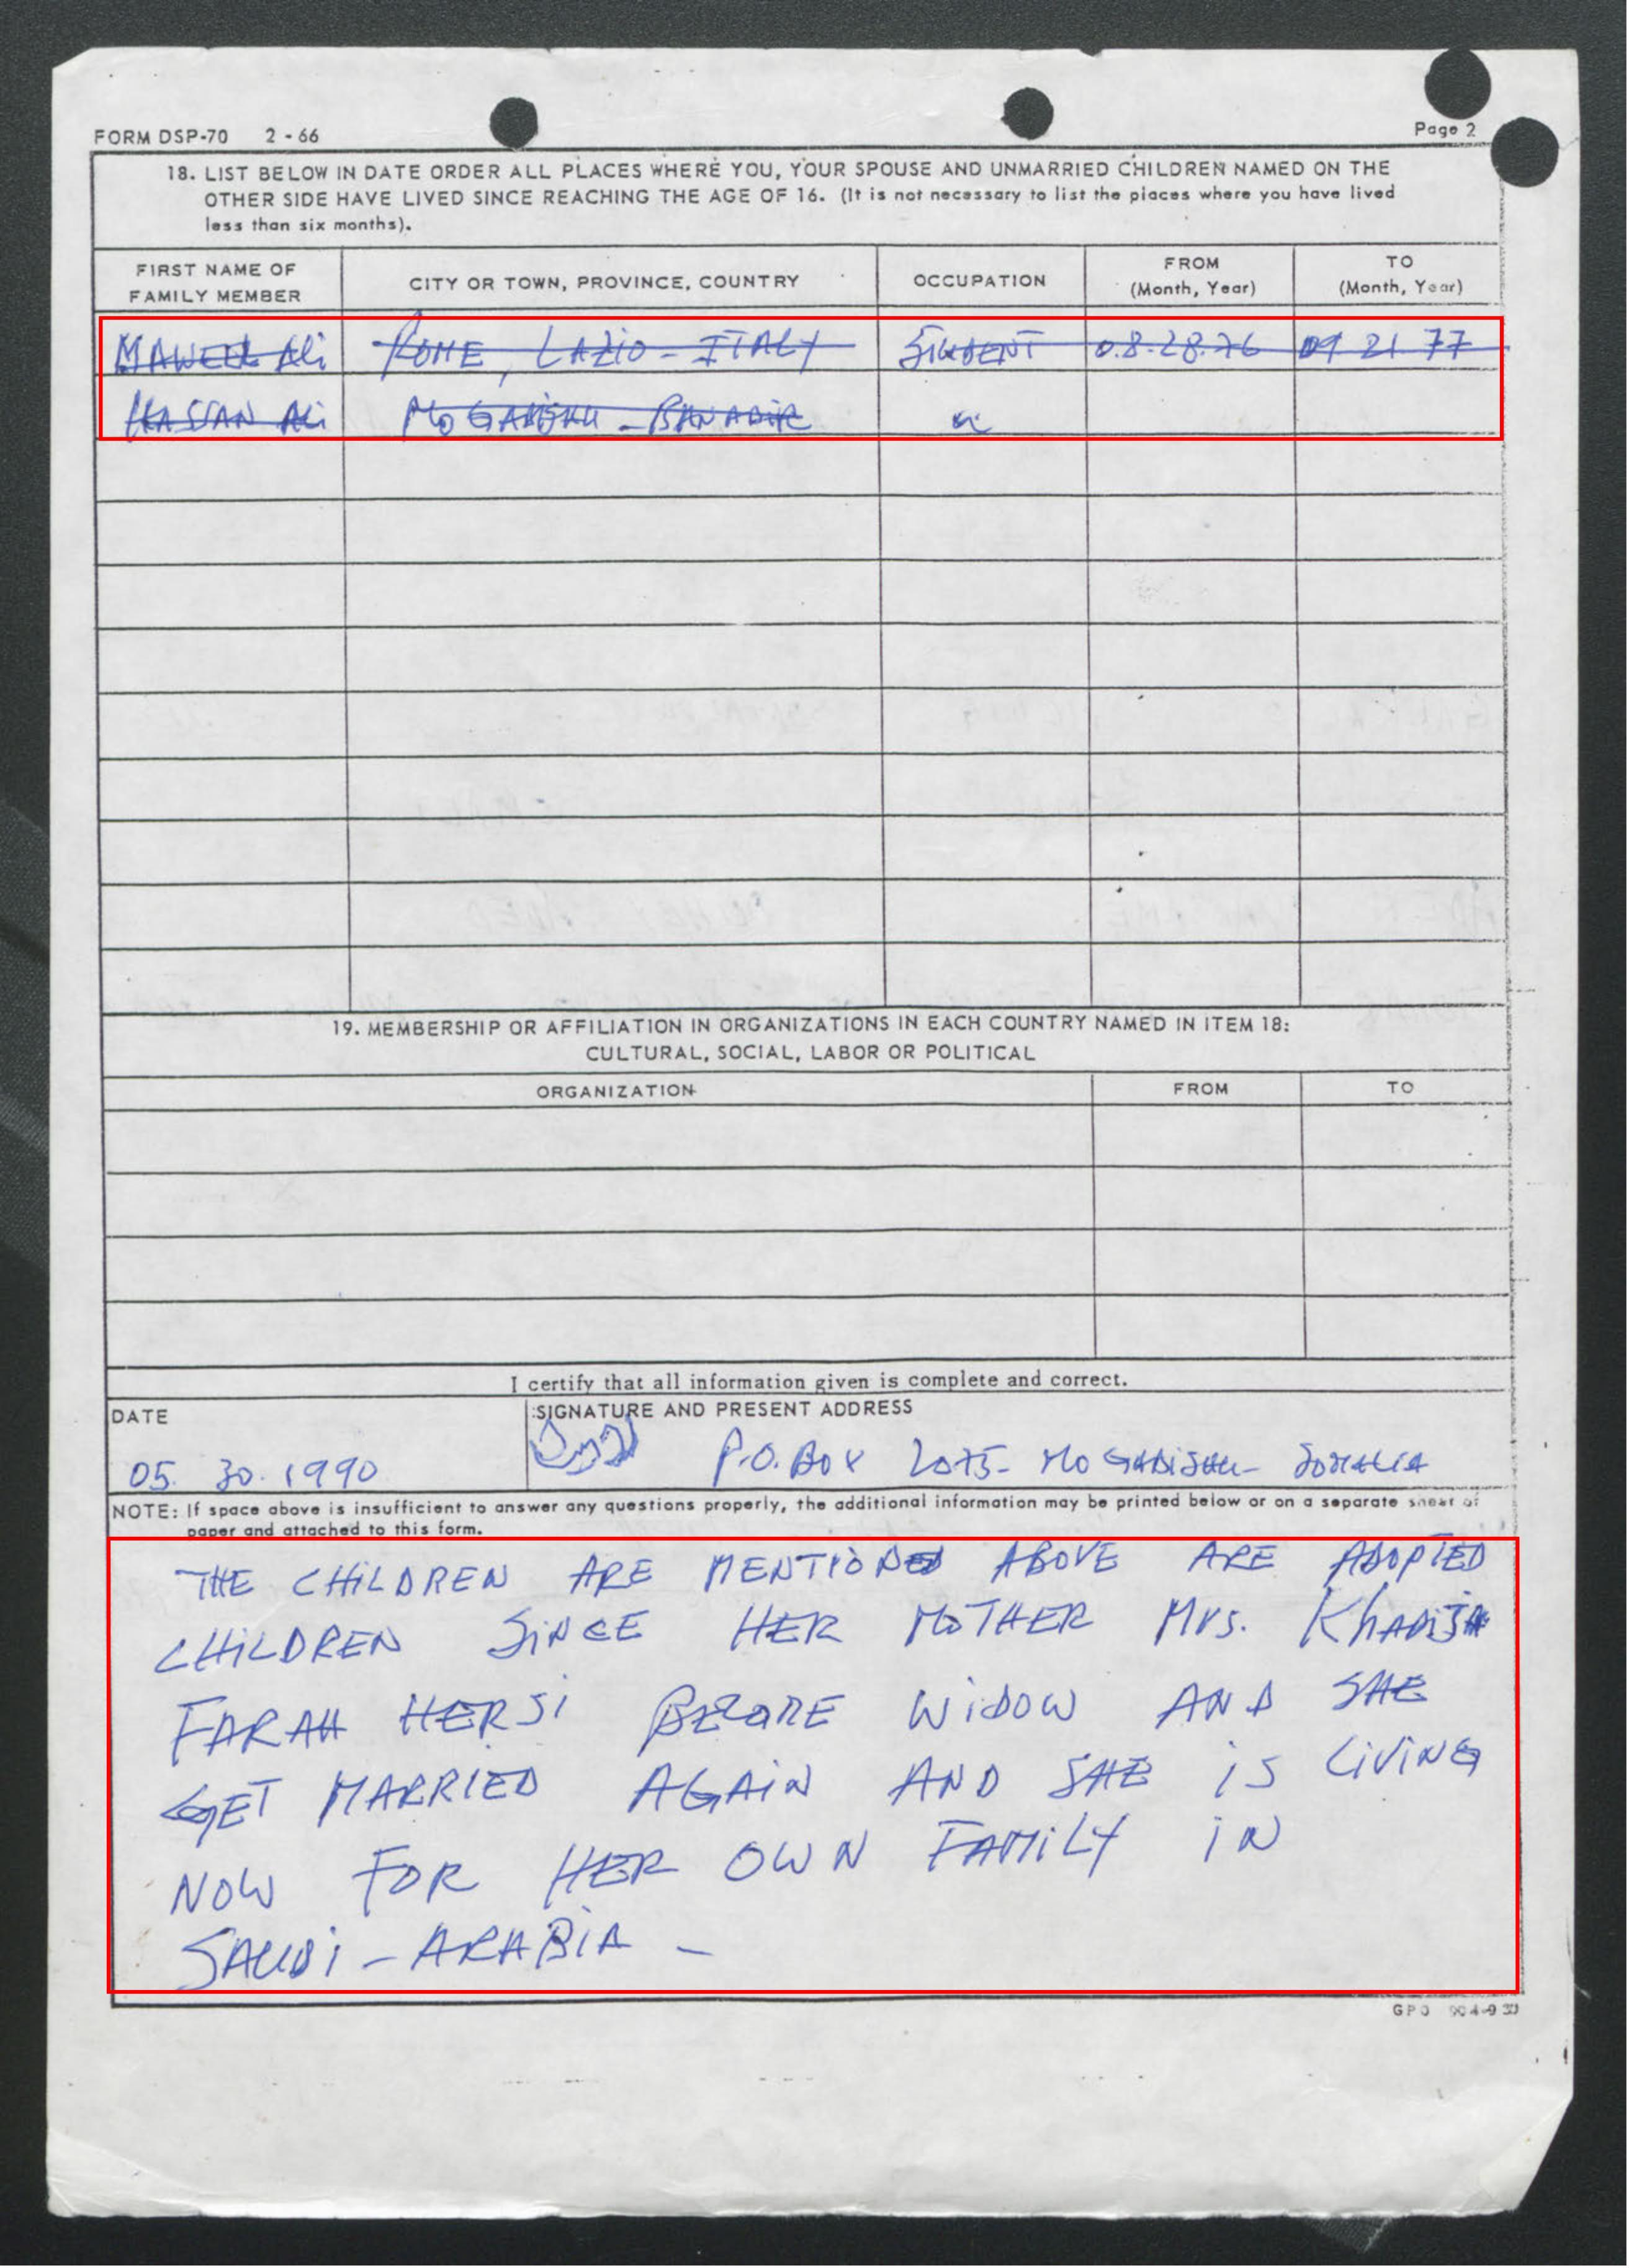 FORM DSP-70 2 - 66
Page 2
18. LIST BELOW IN DATE ORDER ALL PLACES WHERE YOU, YOUR SPOUSE AND UNMARRIED CHILDREN NAMED ON THE
OTHER SIDE HAVE LIVED SINCE REACHING THE AGE OF 16. (It is not necessary to list the places where you have lived
less than six months).
FIRST NAME OF
FAMILY MEMBER
CITY OR TOWN, PROVINCE, COUNTRY
OCCUPATION
FROM
(Month, Year)
TO
(Month, Year)
Ali ROME, LAZIO - ITALY STUDENT 08.28.76 09 21 77
HASSAN Ali MOGADISHU - BANADIR
19. MEMBERSHIP OR AFFILIATION IN ORGANIZATIONS IN EACH COUNTRY NAMED IN ITEM 18:
CULTURAL, SOCIAL, LABOR OR POLITICAL
ORGANIZATION
FROM
TO
I certify that all information given is complete and correct.
DATE
SIGNATURE AND PRESENT ADDRESS
05. 30. 1990
P.O. BOX 2075 - MOGADISHU - SOMALIA
NOTE: If space above is insufficient to answer any questions properly, the additional information may be printed below or on a separate sheet of
paper and attached to this form.
THE CHILDREN ARE MENTIONED ABOVE ARE ADOPTED
CHILDREN SINCE HER MOTHER Mrs. KHADIJA
FARAH HERSI WIDOW AND SHE
GET MARRIED AGAIN AND SHE IS LIVING
NOW FOR HER OWN FAMILY IN
SAUDI - ARABIA -
GPO 904-930